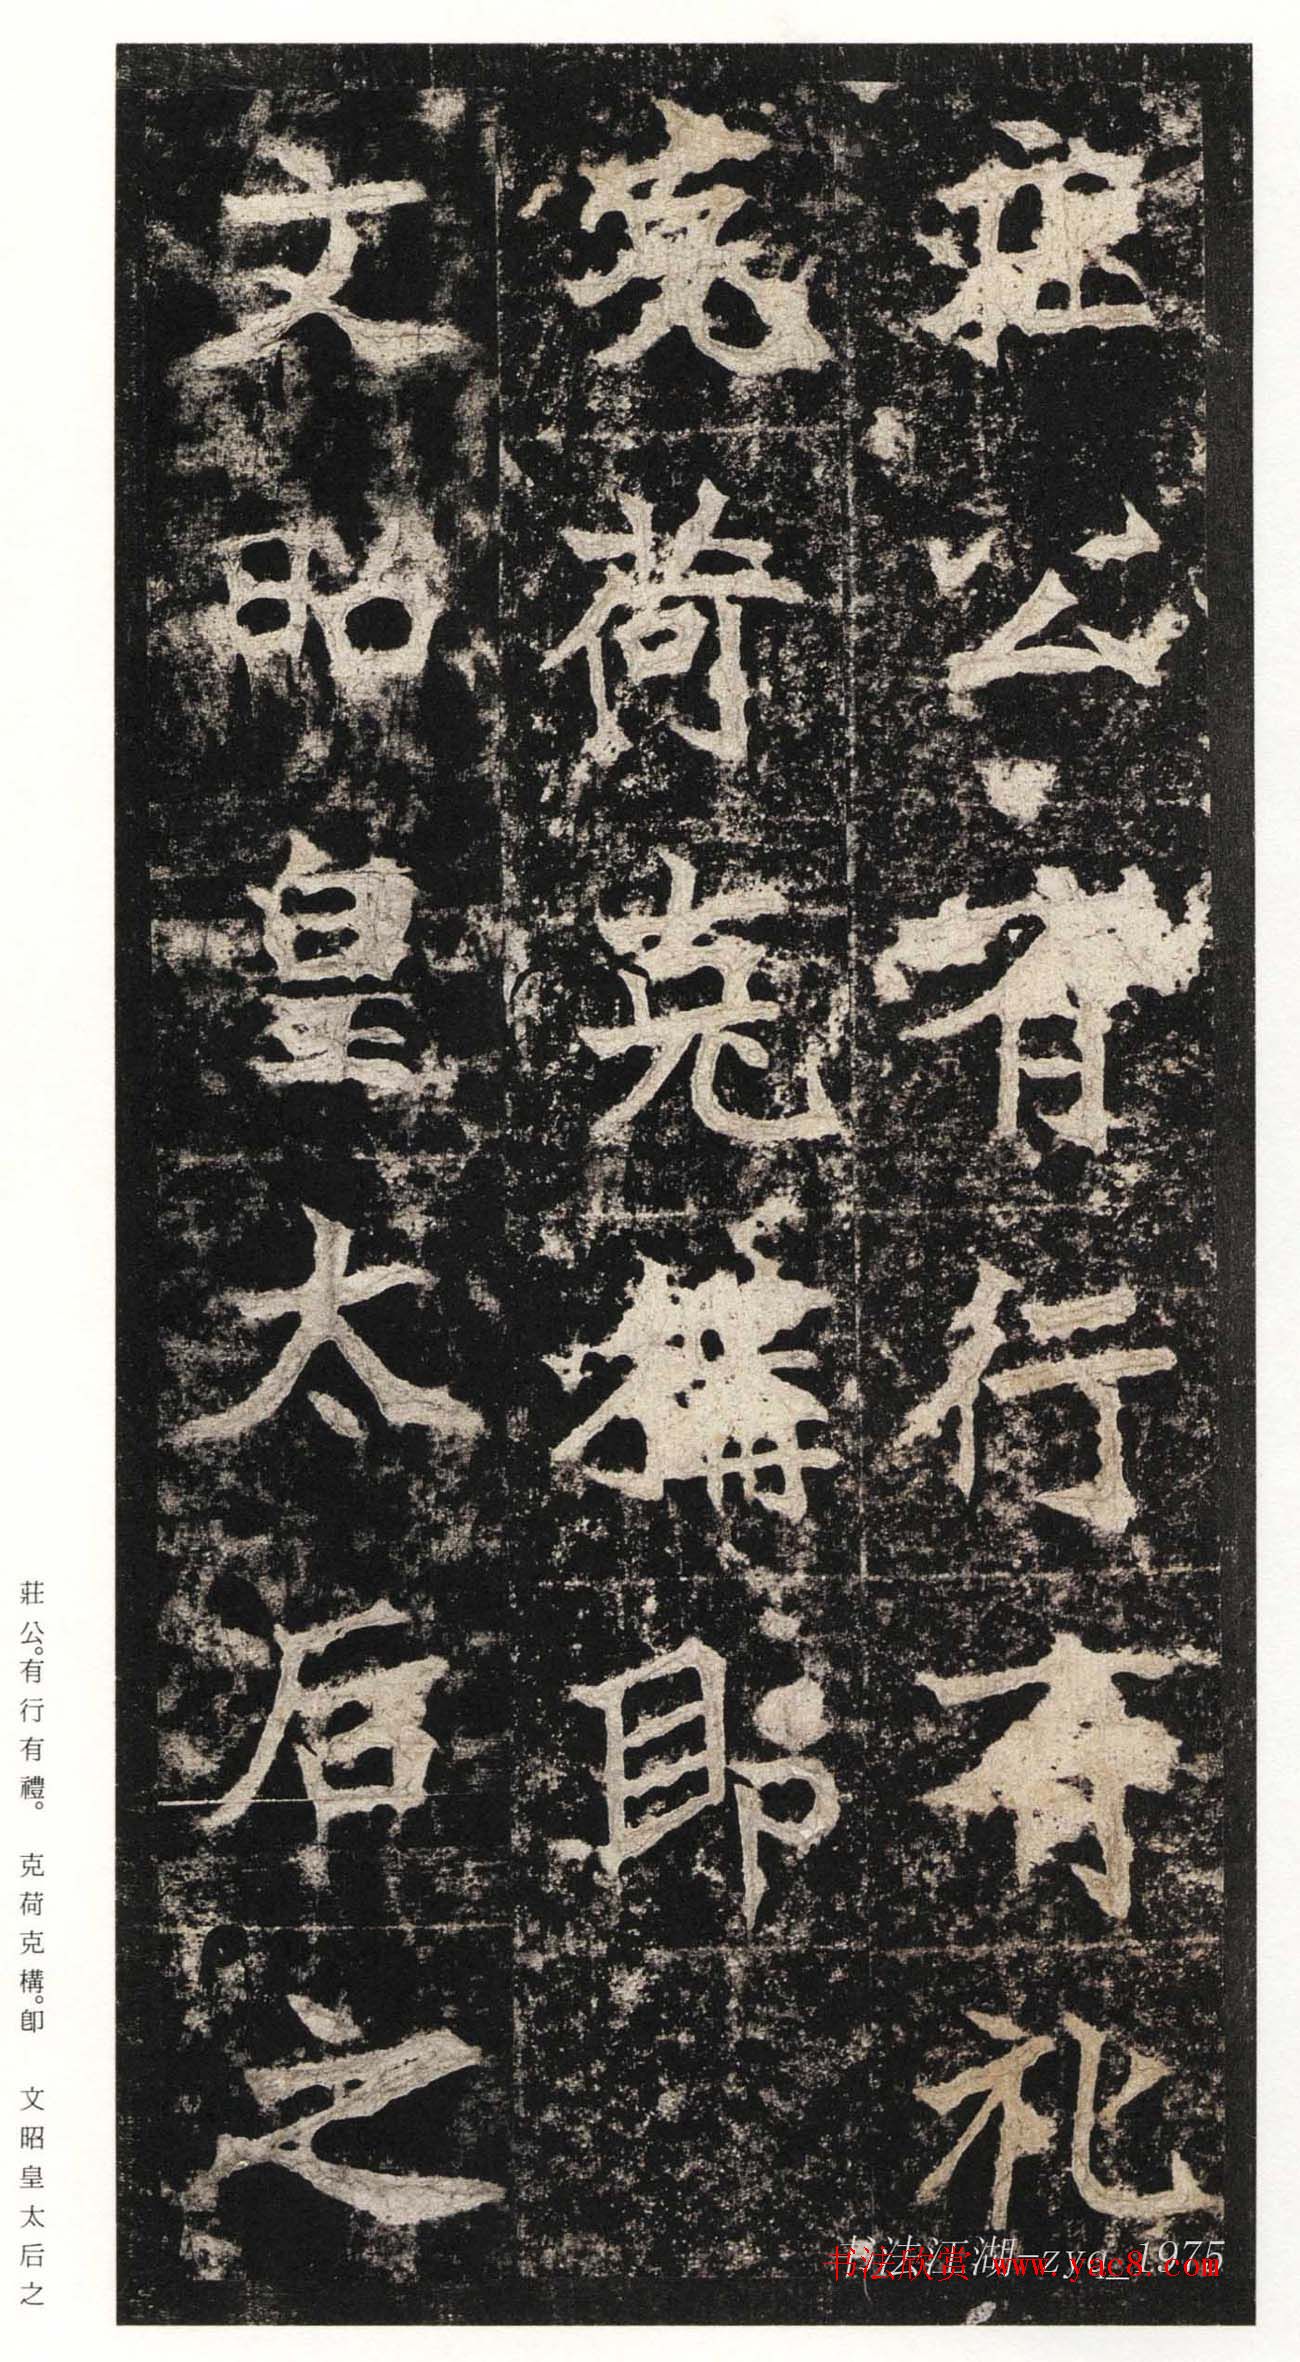 莊公有行有礼
克荷克構即
文昭皇太后之
莊公。有行有禮。 克荷克構。卽 文昭皇太后之
书法江湖—zyq_1975
书法欣赏 www.yac8.com